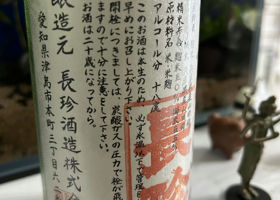 精米歩合 麹米五〇
原材料名 米・米麹
アルコール分 十八度
このお酒は本生のため、必ず氷温以下で管理
早めにお召し上がり下さい。
開栓につきましては、炭酸ガスの圧力で栓が飛
ますので十分に注意をして下さい。
お酒は二十歳になってから。
醸造元 長珍酒造株式会
愛知県津島市本町三丁目六
長珍